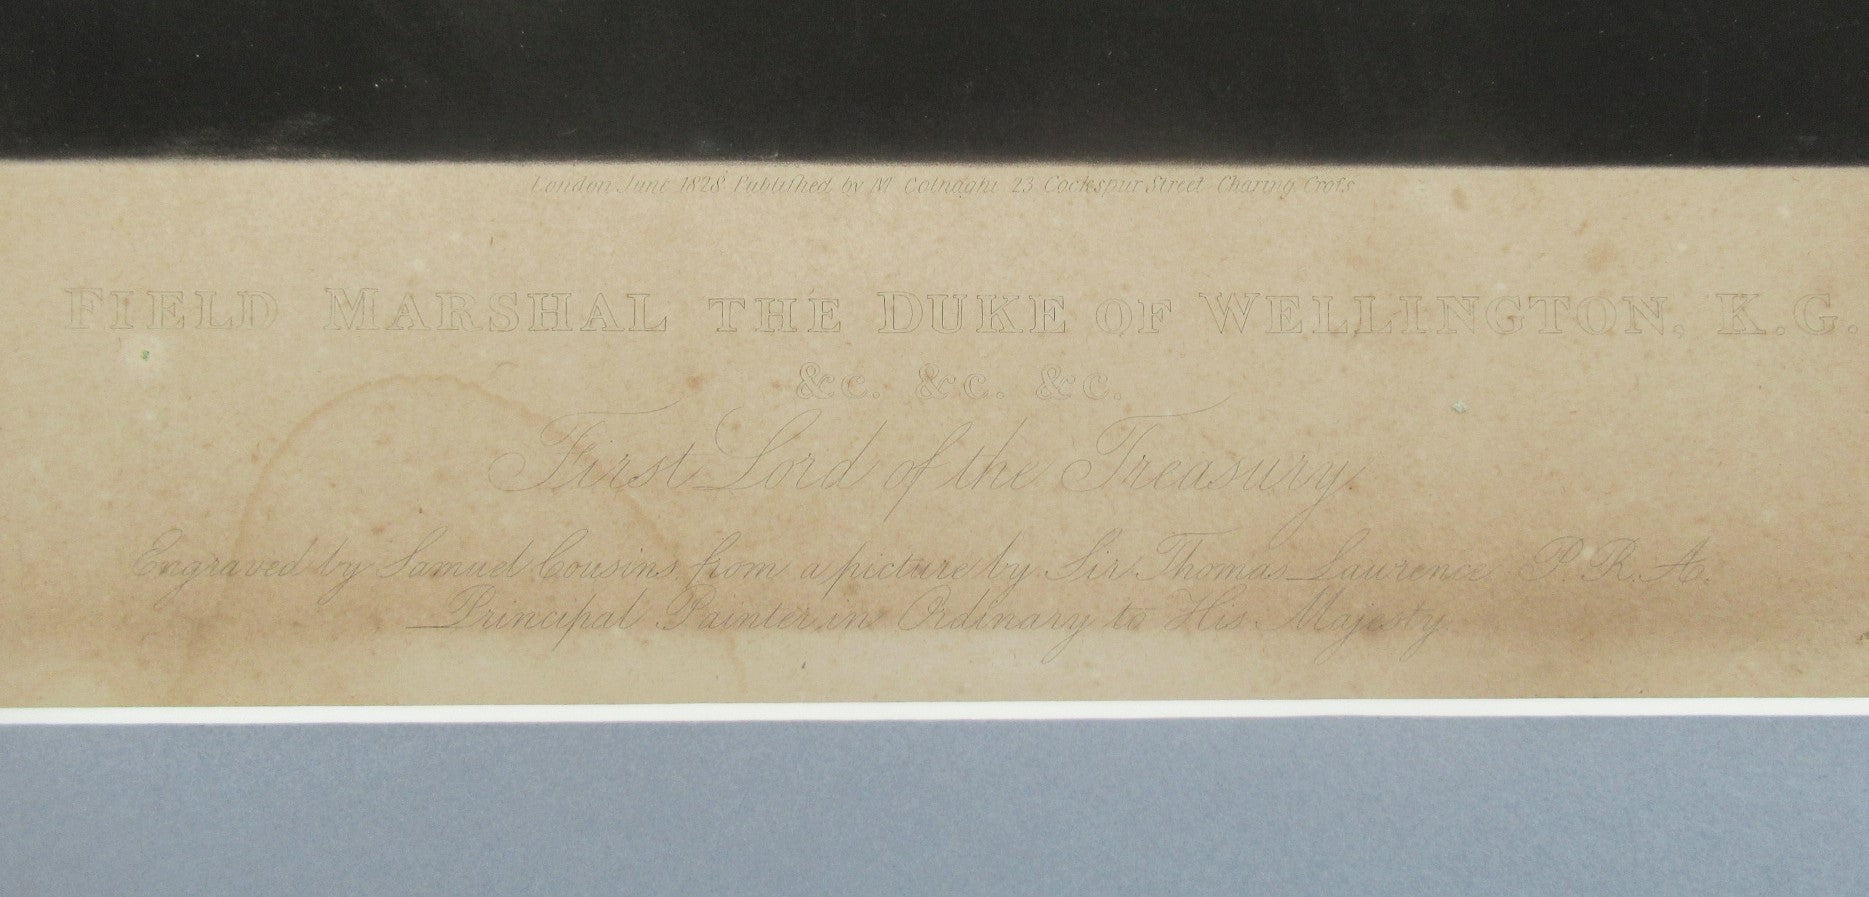 London June 1828 Published by M Colnaghi 23 Cockspur Street Charing Croſs
FIELD MARSHAL THE DUKE OF WELLINGTON, K.G.
&c. &c. &c.
First Lord of the Treasury.
Engraved by Samuel Cousins from a picture by Sir Thomas Lawrence P.R.A.
Principal Painter in Ordinary to His Majesty